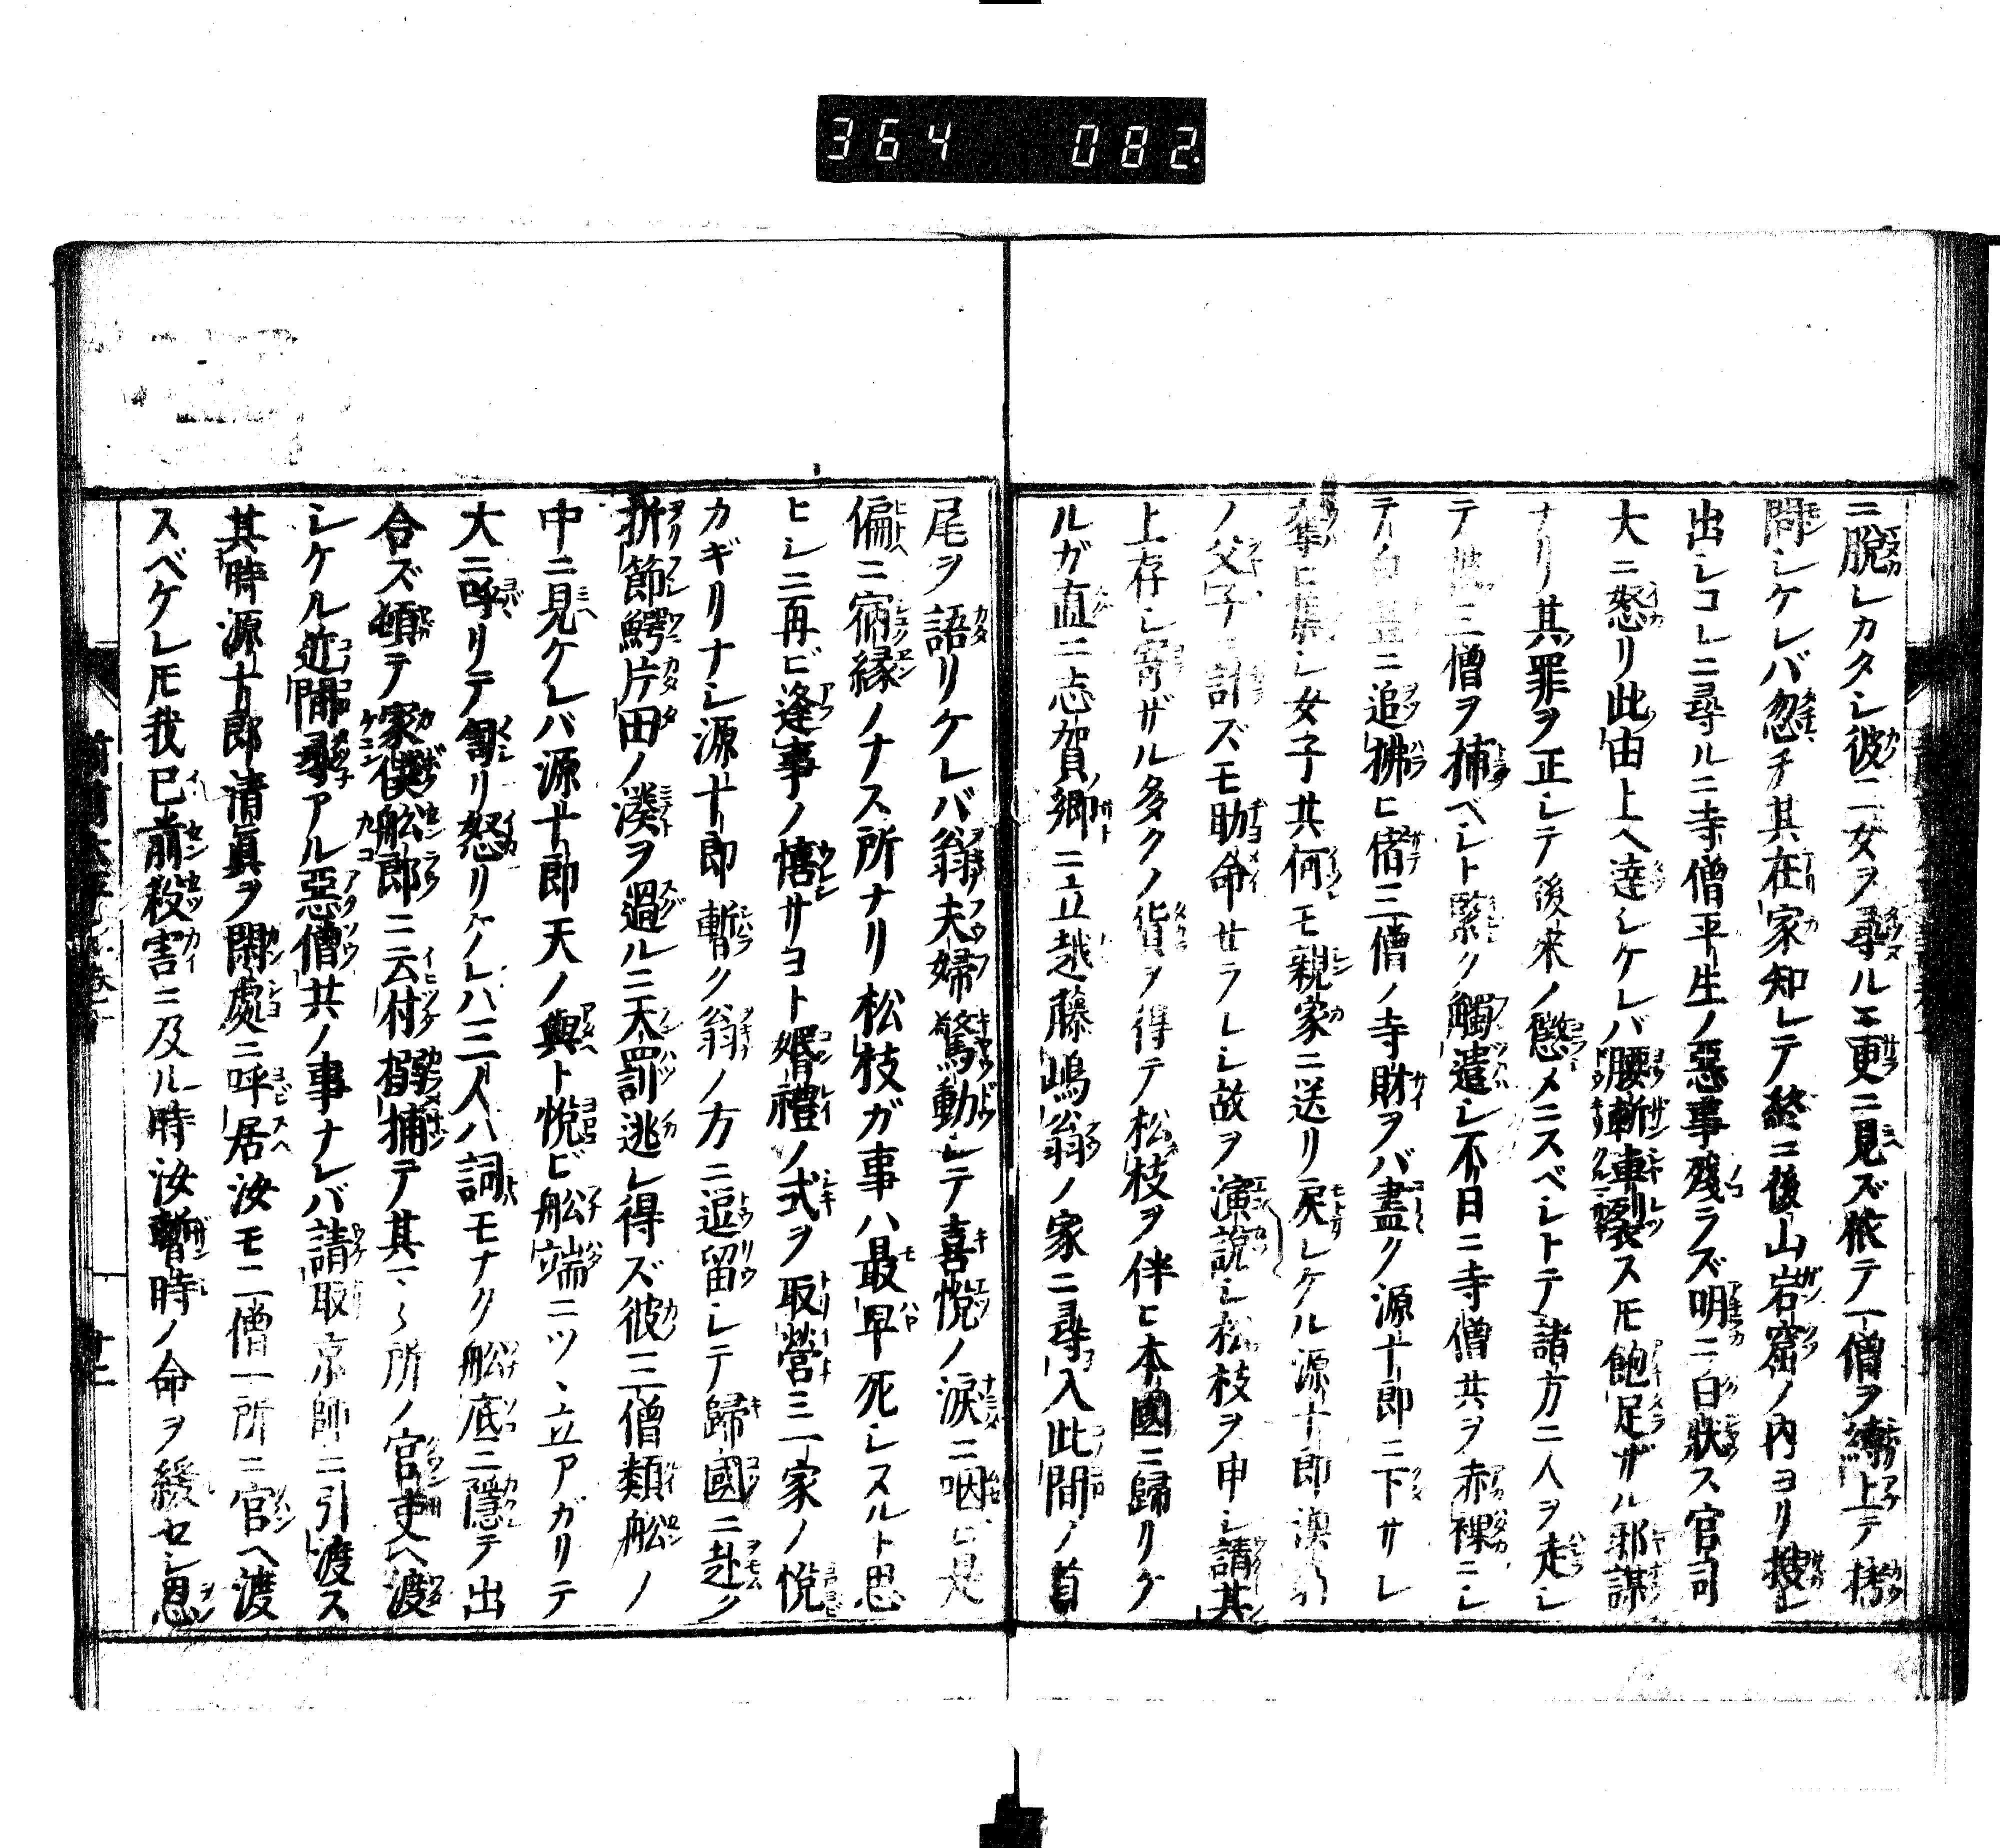 364 082
ニ脱レカタシ彼二女ヲ尋ルニ更ニ見ズ依テ一僧ヲ縛上テ拷
問シケレバ忽チ其在家知レテ終ニ後山岩窟ノ内ヨリ捜シ
出シコレニ尋ルニ寺僧平生ノ惡事殘ラズ明ニ白狀ス官司
大ニ怒リ此由上ヘ達シケレバ腰斬車裂スルモ飽足ザル邪謀
ナリ其罪ヲ正シテ後來ノ懲メニスベシトテ諸方ニ人ヲ走シ
テ彼三僧ヲ捕ベシト緊ク觸遣シ不日ニ寺僧共ヲ赤裸ニシ
テ追拂ヒ偖三僧ノ寺財ヲバ盡ク源十郎ニ下サレ
奪ヒ集シ女子共何モ親家ニ送リ戻シケル源十郎
ノ父子計ズモ助命セラレシ故ヲ演說シ松枝ヲ申シ請其
上存シ寄ザル多クノ貨ヲ得テ松枝ヲ伴ヒ本國ニ歸リケ
ルガ直ニ志賀ノ鄕ニ立越藤嶋翁ノ家ニ尋入此間ノ首
尾ヲ語リケレバ翁夫婦驚動シテ喜悅ノ淚ニ咽ビ是
偏ニ宿緣ノナス所ナリ松枝ガ事ハ最早死シスルト思
ヒシニ再ビ逢事ノ嬉サヨト婚禮ノ式ヲ取營三一家ノ悅
カギリナシ源十郎暫ク翁ノ方ニ逗留シテ歸國ニ赴ク
折節鰐片田ノ湊ヲ過ルニ天罰逃レ得ズ彼三僧類舩ノ
中ニ見ケレバ源十郎天ノ與ト悅ビ舩端ニツヽ立アガリテ
大ニ呼リテ詈リ怒リケレハ三人ハ詞モナク舩底ニ隱テ出
合ズ頓テ家僕舩郎ニ云付搦捕テ其一〻所ノ官吏ヘ渡
シケル近間尋アル惡僧共ノ事ナレバ請取京師ニ引渡ス
其時源十郎淸眞ヲ閑處ニ呼居汝モ二僧一所ニ官ヘ渡
スベケレ𪜈我已前殺害ニ及ル時汝暫時ノ命ヲ緩セシ恩